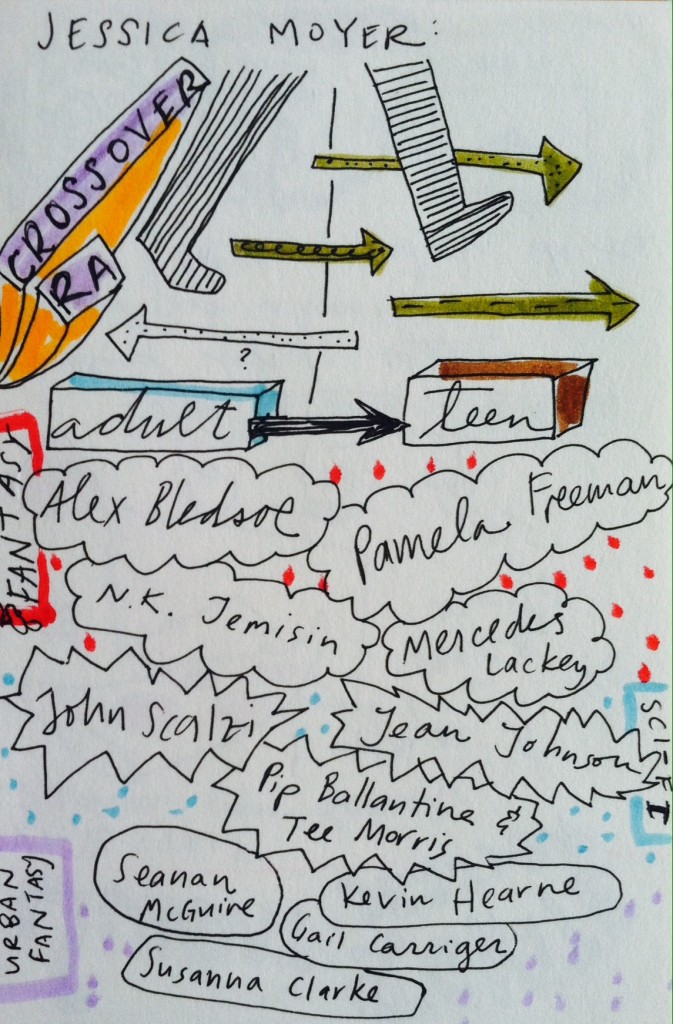 JESSICA MOYER:
CROSSOVER
RA
?
adult
teen
FANTASY
Alex Bledsoe
Pamela Freeman
N.K. Jemisin
Mercedes
Lackey
SCI-FI
John Scalzi
Jean Johnson
Pip Ballantine &
Tee Morris
URBAN
FANTASY
Seanan
McGuire
Kevin Hearne
Gail Carriger
Susanna Clarke